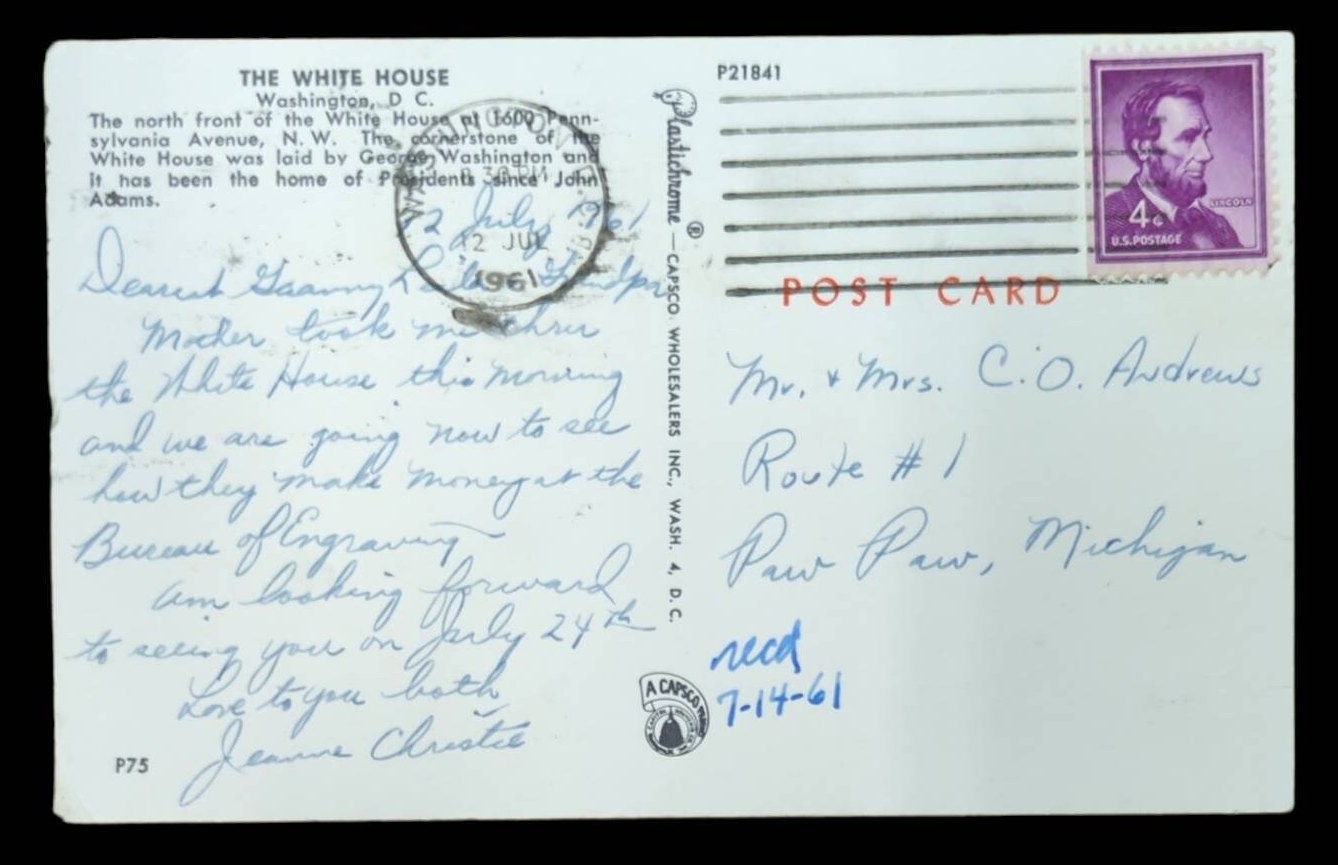 THE WHITE HOUSE
Washington, D C.
The north front of the White House at 1600 Penn-
sylvania Avenue, N. W. The cornerstone of the
White House was laid by George Washington and
it has been the home of Presidents since John
Adams.
WASHINGTON
8 30 PM
12 JUL
1961
12 July 1961
Dearest Granny & Grandpa
Mother took me thru
the White House this morning
and we are going now to see
how they make money at the
Bureau of Engraving
Am looking forward
to seeing you on July 24th
Love to you both
Jeanne Christie
P75
Plastichrome ® — CAPSCO WHOLESALERS INC., WASH. 4, D. C.
A CAPSCO
P21841
LINCOLN
4¢
U.S. POSTAGE
POST CARD
Mr. + Mrs. C. O. Andrews
Route # 1
Paw Paw, Michigan
recd
7-14-61